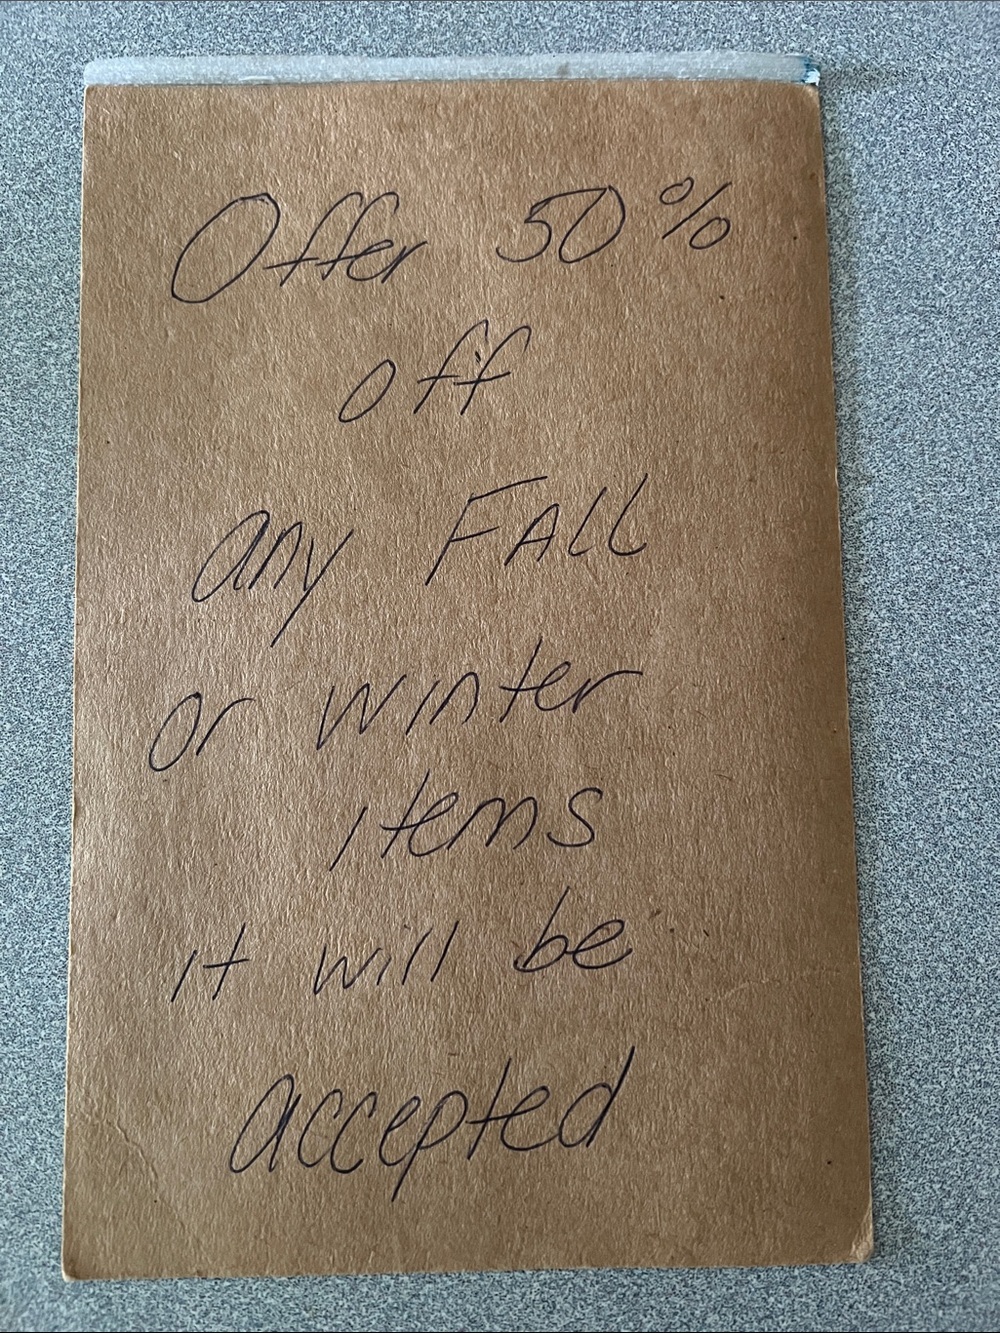 Offer 50%
off
any FALL
or winter
items
it will be
accepted